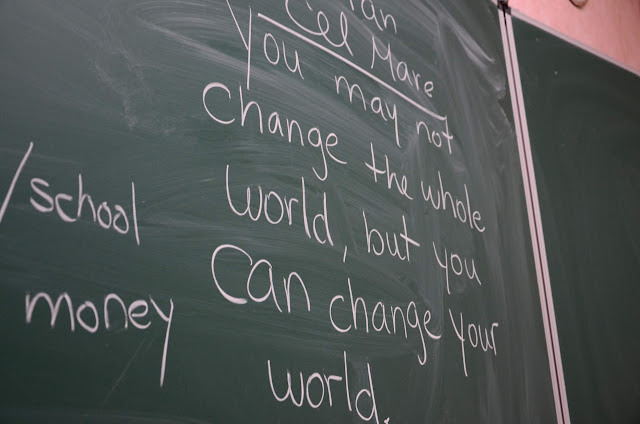 Cel Mare
You may not
change the whole
world, but you
can change your
world.
/school
money